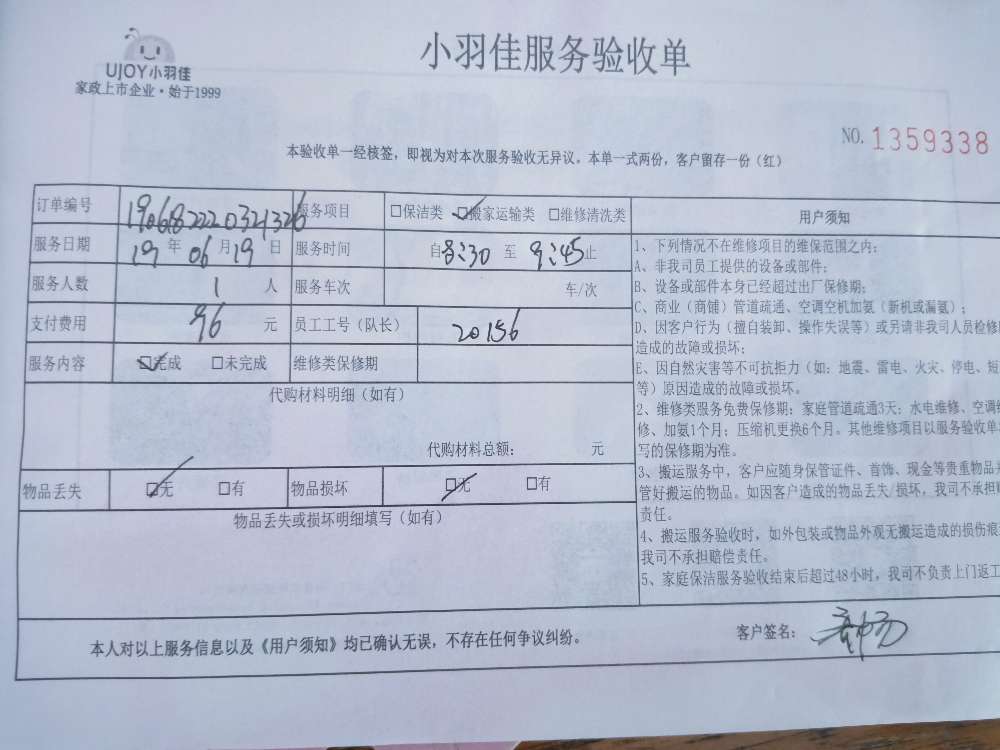 UJOY小羽佳
家政上市企业·始于1999
小羽佳服务验收单
NO. 1359338
本验收单一经核签，即视为对本次服务验收无异议。本单一式两份，客户留存一份（红）
订单编号 服务项目 □保洁类 ☑搬家运输类 □维修清洗类
服务日期 19 年 06 月 19 日 服务时间 自 8:30 至 9:45 止
服务人数 1 人 服务车次 车/次
支付费用 96 元 员工工号（队长） 20156
服务内容 ☑完成 □未完成 维修类保修期
代购材料明细（如有）
代购材料总额： 元
物品丢失 ☑无 □有 物品损坏 ☑无 □有
物品丢失或损坏明细填写（如有）
用户须知
1、下列情况不在维修项目的维保范围之内：
A、非我司员工提供的设备或部件；
B、设备或部件本身已经超过出厂保修期；
C、商业（商铺）管道疏通、空调空机加氨（新机或漏氨）；
D、因客户行为（擅自装卸、操作失误等）或另请非我司人员检修
造成的故障或损坏；
E、因自然灾害等不可抗拒力（如：地震、雷电、火灾、停电、短
等）原因造成的故障或损坏。
2、维修类服务免费保修期：家庭管道疏通3天；水电维修、空调
修、加氨1个月；压缩机更换6个月。其他维修项目以服务验收单
写的保修期为准。
3、搬运服务中，客户应随身保管证件、首饰、现金等贵重物品
管好搬运的物品。如因客户造成的物品丢失/损坏，我司不承担
责任。
4、搬运服务验收时，如外包装或物品外观无搬运造成的损伤痕
我司不承担赔偿责任。
5、家庭保洁服务验收结束后超过48小时，我司不负责上门返工
本人对以上服务信息以及《用户须知》均已确认无误，不存在任何争议纠纷。
客户签名：